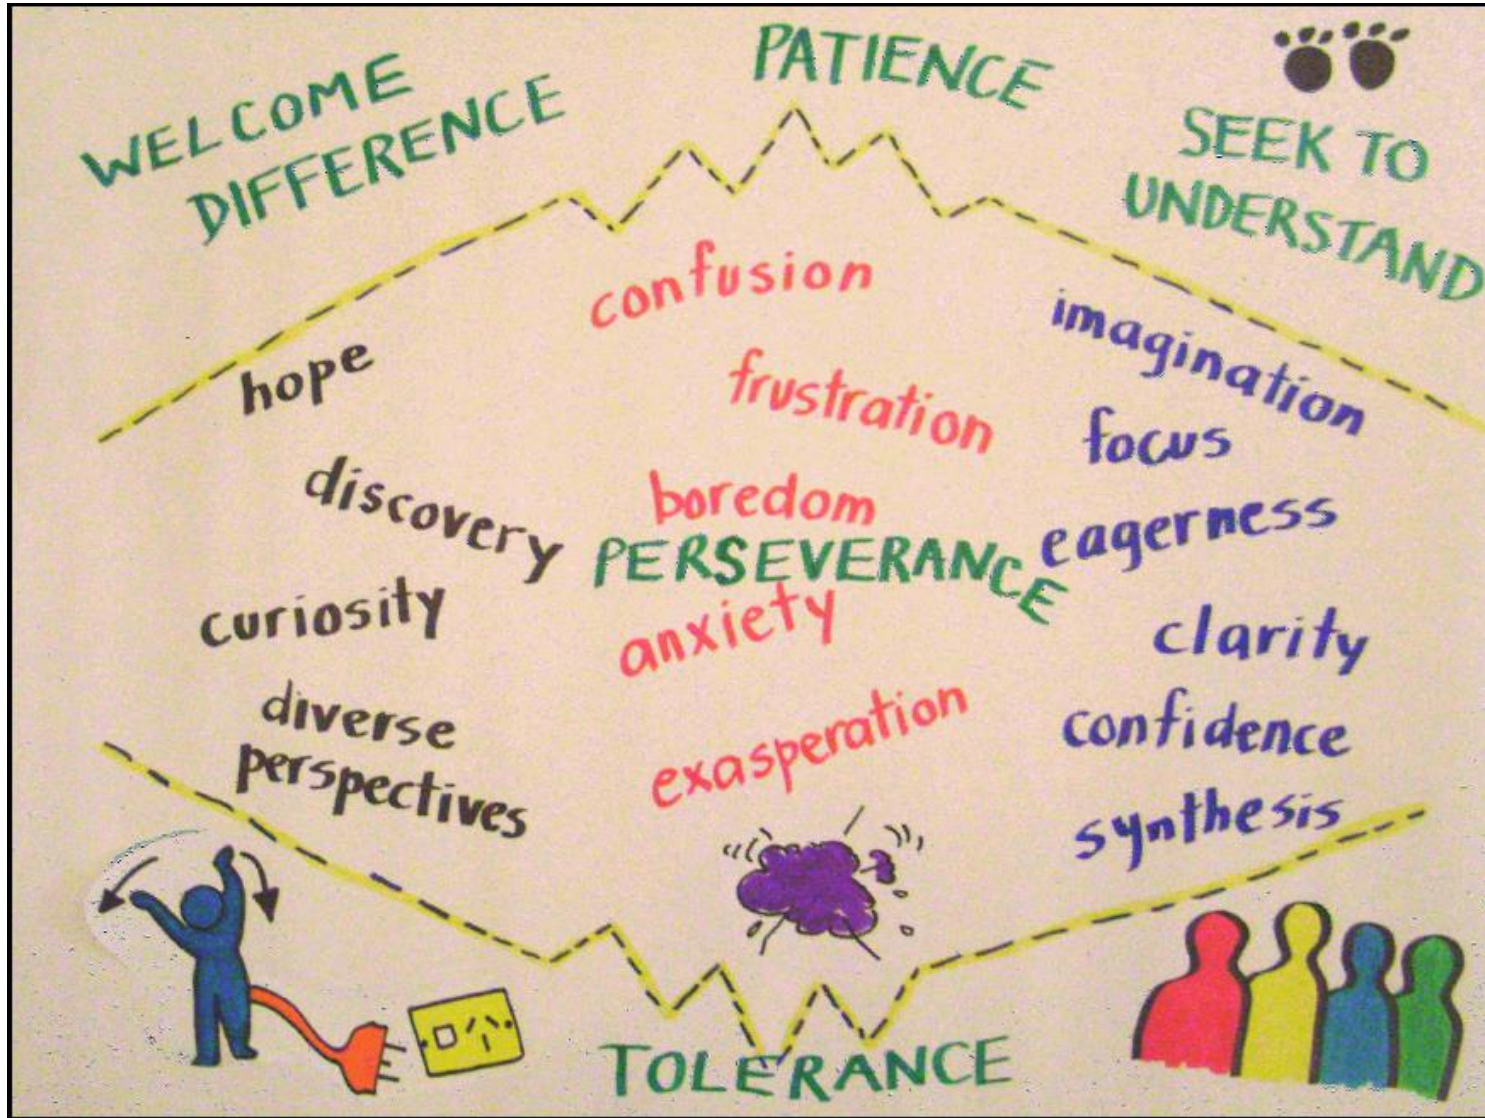 WELCOME
DIFFERENCE
PATIENCE
SEEK TO
UNDERSTAND
hope
discovery
curiosity
diverse
perspectives
confusion
frustration
boredom
PERSEVERANCE
anxiety
exasperation
imagination
focus
eagerness
clarity
confidence
synthesis
TOLERANCE